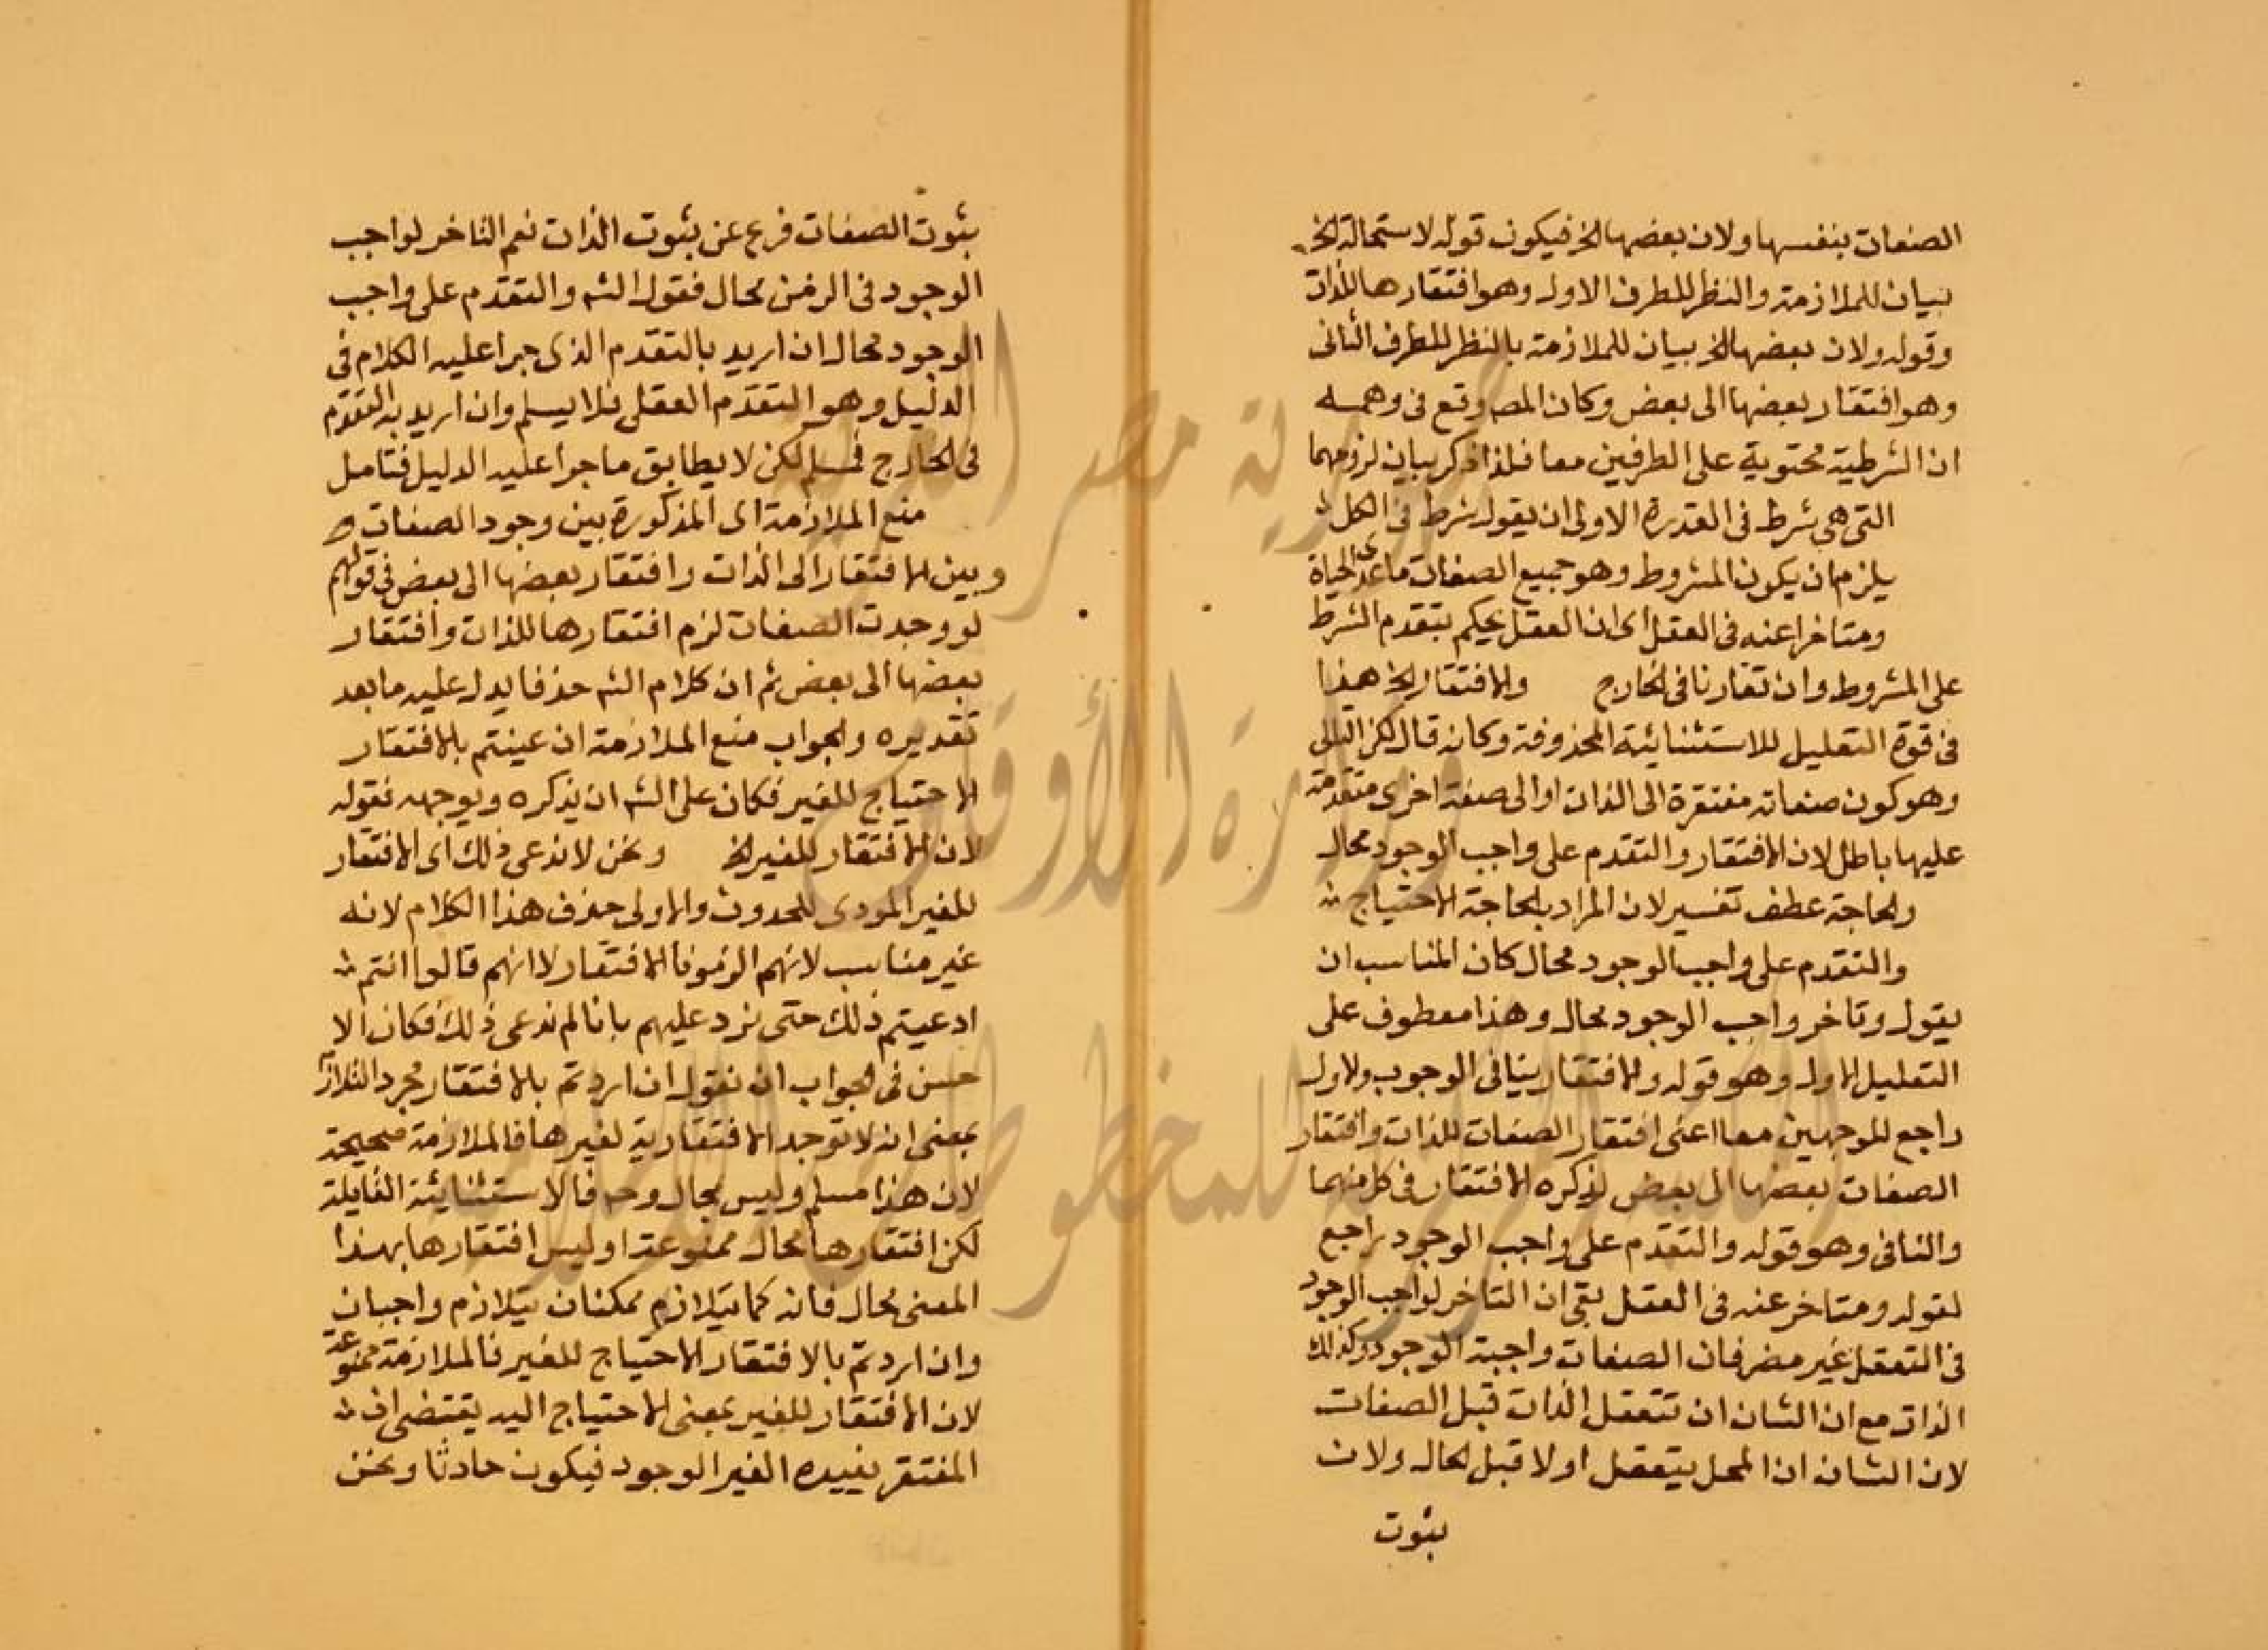 الصفات بنفسها ولان بعضها الخ فيكون قوله لاستحالة الخ
بيان للملازمة والنظر للطرف الاول وهو افتقارها للذات
وقوله ولان بعضها الخ بيان للملازمة بالنظر للطرف الثانى
وهو افتقار بعضها الى بعض وكان المصـ وقع فى وهمه
ان الشرطية محتوية على الطرفين معا فلذا ذكر بيان لزومهما
التى هى شرط فى القدرة الاولى ان يقول شرط فى الكل
يلزم ان يكون المشروط وهو جميع الصفات ما عدى الحياة
ومتاخرا عنه فى العقل اى ان العقل يحكم بتقدم الشرط
على المشروط وان تقارنا فى الخارج والافتقار الخ هذا
فى قوة التعليل للاستثنائية المحذوفة وكانه قال لكن التالى
وهو كون صفاته مفتقرة الى الذات او الى صفة اخرى متقدمة
عليها باطل لان الافتقار والتقدم على واجب الوجود محال
والحاجة عطف تفسير لان المراد بالحاجة الاحتياج
والتقدم على واجب الوجود محال كان المناسب ان
يقول وتاخر واجب الوجود محال وهذا معطوف على
التعليل الاول وهو قوله والافتقار ينافى الوجوب ولاول
راجع للوجهين معا اعنى افتقار الصفات للذات وافتقار
الصفات بعضها الى بعض لذكره الافتقار فى كل منهما
والثانى وهو قوله والتقدم على واجب الوجود راجع
لقوله ومتاخر عنه فى العقل بقى ان التاخر لواجب الوجود
فى التعقل غير مضر فان الصفات واجبة الوجود وكذلك
الذات مع ان الشان ان تتعقل الذات قبل الصفات
لان الشان ان المحل يتعقل اولا قبل الحال ولان
بثوت
بثوت الصفات فرع عن بثوت الذات نعم التاخر لواجب
الوجود فى الزمن محال فقول الشـ والتقدم على واجب
الوجود محال ان اريد بالتقدم الذى جرا عليه الكلام فى
الدليل وهو التقدم العقلى فلا يسلم وان اريد به التقدم
فى الخارج فمسلم لكن لا يطابق ما جرا عليه الدليل فتامل
منع الملازمة اى المذكورة بين وجود الصفات
وبين الافتقار الى الذات وافتقار بعضها الى بعض فى قولهم
لو وجدت الصفات لزم افتقارها للذات وافتقار
بعضها الى بعض ثم ان كلام الشـ حذفا يدل عليه ما بعد
تقديره والجواب منع الملازمة ان عينتم بالافتقار
الاحتياج للغير فكان على الشـ ان يذكره ويوجهه بقوله
لان الافتقار للغير الخ ونحن لا ندعى ذلك اى الافتقار
للغير المودى للحدوث والاولى حذف هذا الكلام لانه
غير مناسب لانهم الزمونا الافتقار لا انهم قالوا انتم
ادعيتم ذلك حتى نرد عليهم بانا لم ندعى ذلك فكان الا
حسن فى الجواب ان نقول ان اردتم بالافتقار مجرد التلازم
بمعنى انه لا توجد الافتقارية لغيرها فالملازمة صحيحة
لان هذا مسلم وليس بمحال وحـ فالاستثنائية القايلة
لكن افتقارها محال ممنوعة اوليس افتقارها بهذا
المعنى محال فانه كما يتلازم ممكنان يتلازم واجبان
وان اردتم بالافتقار الاحتياج للغير فالملازمة ممنوعة
لان الافتقار للغير بمعنى الاحتياج اليه يقتضى ان
المفتقر يفيده الغير الوجود فيكون حادثا ونحن